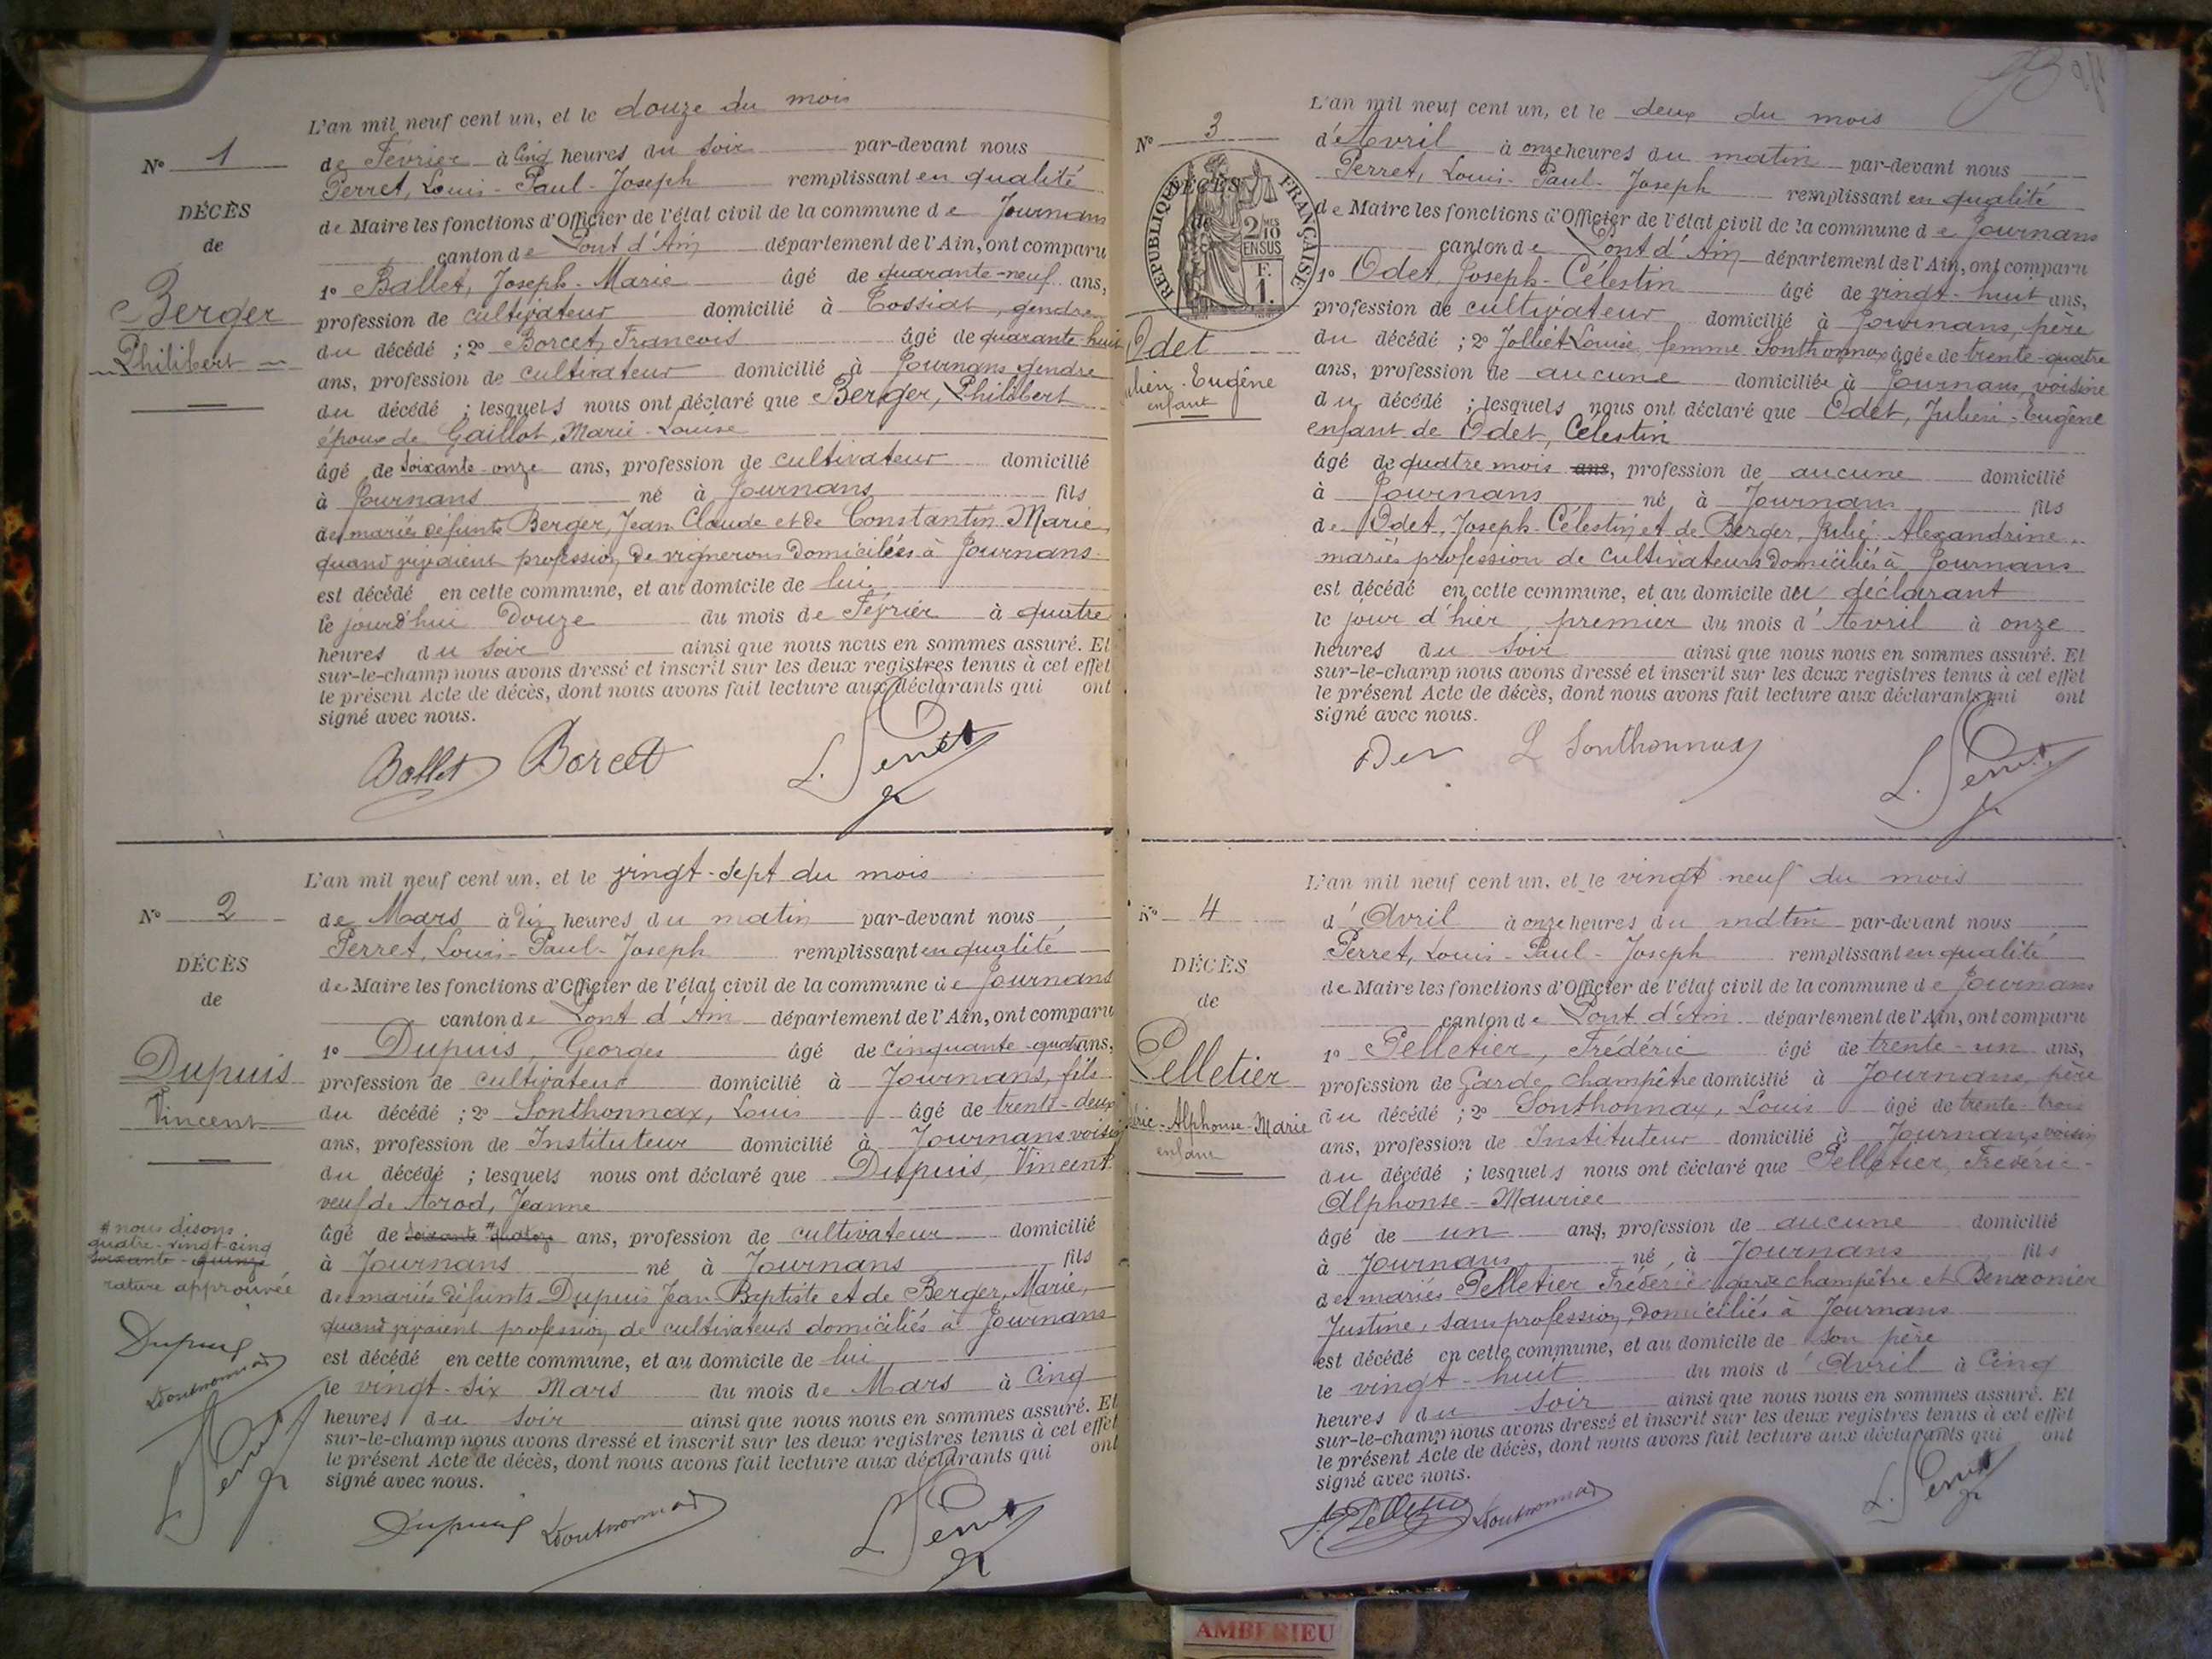 L'an mil neuf cent un, et le douze du mois
N° 1
de Fevrier à Cinq heures du soir par-devant nous
Perret, Louis-Paul-Joseph remplissant en qualité
DÉCÈS
de Maire les fonctions d'Officier de l'état civil de la commune de Journans
de
canton de Pont d'Ain département de l'Ain, ont comparu
1° Ballet, Joseph-Marie âgé de quarante-neuf ans,
Berger
profession de cultivateur domicilié à Tossiat, gendre
Philibert
du décédé ; 2° Borcet, Francois âgé de quarante-huit
ans, profession de cultivateur domicilié à Journans gendre
du décédé ; lesquels nous ont déclaré que Berger, Philibert
époux de Gaillot, Marie-Louise
âgé de soixante-onze ans, profession de cultivateur domicilié
à Journans né à Journans fils
des mariés défunts Berger, Jean Claude et de Constantin Marie
quand vivaient profession de vignerons domiciliés à Journans
est décédé en cette commune, et au domicile de lui
le jourd'hui Douze du mois de Février à quatre
heures du soir ainsi que nous nous en sommes assuré. Et
sur-le-champ nous avons dressé et inscrit sur les deux registres tenus à cet effet
le présent Acte de décès, dont nous avons fait lecture aux déclarants qui ont
signé avec nous.
Ballet Borcet L. Perret
L'an mil neuf cent un, et le vingt-sept du mois
N° 2
de Mars à dix heures du matin par-devant nous
Perret, Louis-Paul-Joseph remplissant en qualité
DÉCÈS
de Maire les fonctions d'Officier de l'état civil de la commune de Journans
de
canton de Pont d'Ain département de l'Ain, ont comparu
1° Dupuis, Georges âgé de cinquante-quatre ans,
Dupuis
profession de cultivateur domicilié à Journans, fils
Vincent
du décédé ; 2° Sonthonnax, Louis âgé de trente-deux
ans, profession de Instituteur domicilié à Journans voisin
du décédé ; lesquels nous ont déclaré que Dupuis, Vincent
veuf de Arod, Jeanne
âgé de soixante # quatorze ans, profession de cultivateur domicilié
# nous disons
quatre-vingt-cinq
soixante quinze
rature approuvée
à Journans né à Journans fils
des mariés défunts Dupuis Jean Baptiste et de Berger, Marie,
quand vivaient profession de cultivateurs domiciliés à Journans
est décédé en cette commune, et au domicile de lui
le vingt-six Mars du mois de Mars à Cinq
heures du soir ainsi que nous nous en sommes assuré. Et
sur-le-champ nous avons dressé et inscrit sur les deux registres tenus à cet effet
le présent Acte de décès, dont nous avons fait lecture aux déclarants qui ont
signé avec nous.
Dupuis
LSonthonnax
L. Perret
Dupuis LSonthonnax L. Perret
L'an mil neuf cent un, et le deux du mois
N° 3
d'Avril à onze heures du matin par-devant nous
Perret, Louis-Paul-Joseph remplissant en qualité
DÉCÈS
de
RÉPUBLIQUE FRANÇAISE
2/10 MES
EN SUS
F.
1.
de Maire les fonctions d'Officier de l'état civil de la commune de Journans
canton de Pont d'Ain département de l'Ain, ont comparu
1° Odet, Joseph-Célestin âgé de vingt-huit ans,
profession de cultivateur domicilié à Journans, père
Odet
du décédé ; 2° Jolliet Louise, femme Sonthonnax âgée de trente-quatre
ulien-Eugêne
enfant
ans, profession de aucune domiciliée à Journans, voisine
du décédé ; lesquels nous ont déclaré que Odet, Julien-Eugêne
enfant de Odet, Célestin
âgé de quatre mois ans, profession de aucune domicilié
à Journans né à Journans fils
de Odet, Joseph-Célestin et de Berger, Julie-Alexandrine,
mariés profession de cultivateurs domiciliés à Journans
est décédé en cette commune, et au domicile du déclarant
le jour d'hier, premier du mois d'Avril à onze
heures du soir ainsi que nous nous en sommes assuré. Et
sur-le-champ nous avons dressé et inscrit sur les deux registres tenus à cet effet
le présent Acte de décès, dont nous avons fait lecture aux déclarants qui ont
signé avec nous.
L Sonthonnax L. Perret
L'an mil neuf cent un, et le vingt neuf du mois
N° 4
d'Avril à onze heures du matin par-devant nous
Perret, Louis-Paul-Joseph remplissant en qualité
DÉCÈS
de Maire les fonctions d'Officier de l'état civil de la commune de Journans
de
canton de Pont d'Ain département de l'Ain, ont comparu
1° Pelletier, Frédéric âgé de trente-un ans,
Pelletier
profession de Garde champêtre domicilié à Journans, père
éric-Alphonse-Marie
enfant
du décédé ; 2° Sonthonnax, Louis âgé de trente-trois
ans, profession de Instituteur domicilié à Journans, voisin
du décédé ; lesquels nous ont déclaré que Pelletier, Frédéric-
Alphonse-Maurice
âgé de un ans, profession de aucune domicilié
à Journans né à Journans fils
des mariés Pelletier Frédéric garde champêtre et
Justine, sans profession, domiciliés à Journans
est décédé en cette commune, et au domicile de son père
le vingt-huit du mois d'Avril à Cinq
heures du soir ainsi que nous nous en sommes assuré. Et
sur-le-champ nous avons dressé et inscrit sur les deux registres tenus à cet effet
le présent Acte de décès, dont nous avons fait lecture aux déclarants qui ont
signé avec nous.
F. Pelletier LSonthonnax L. Perret
AMBERIEU